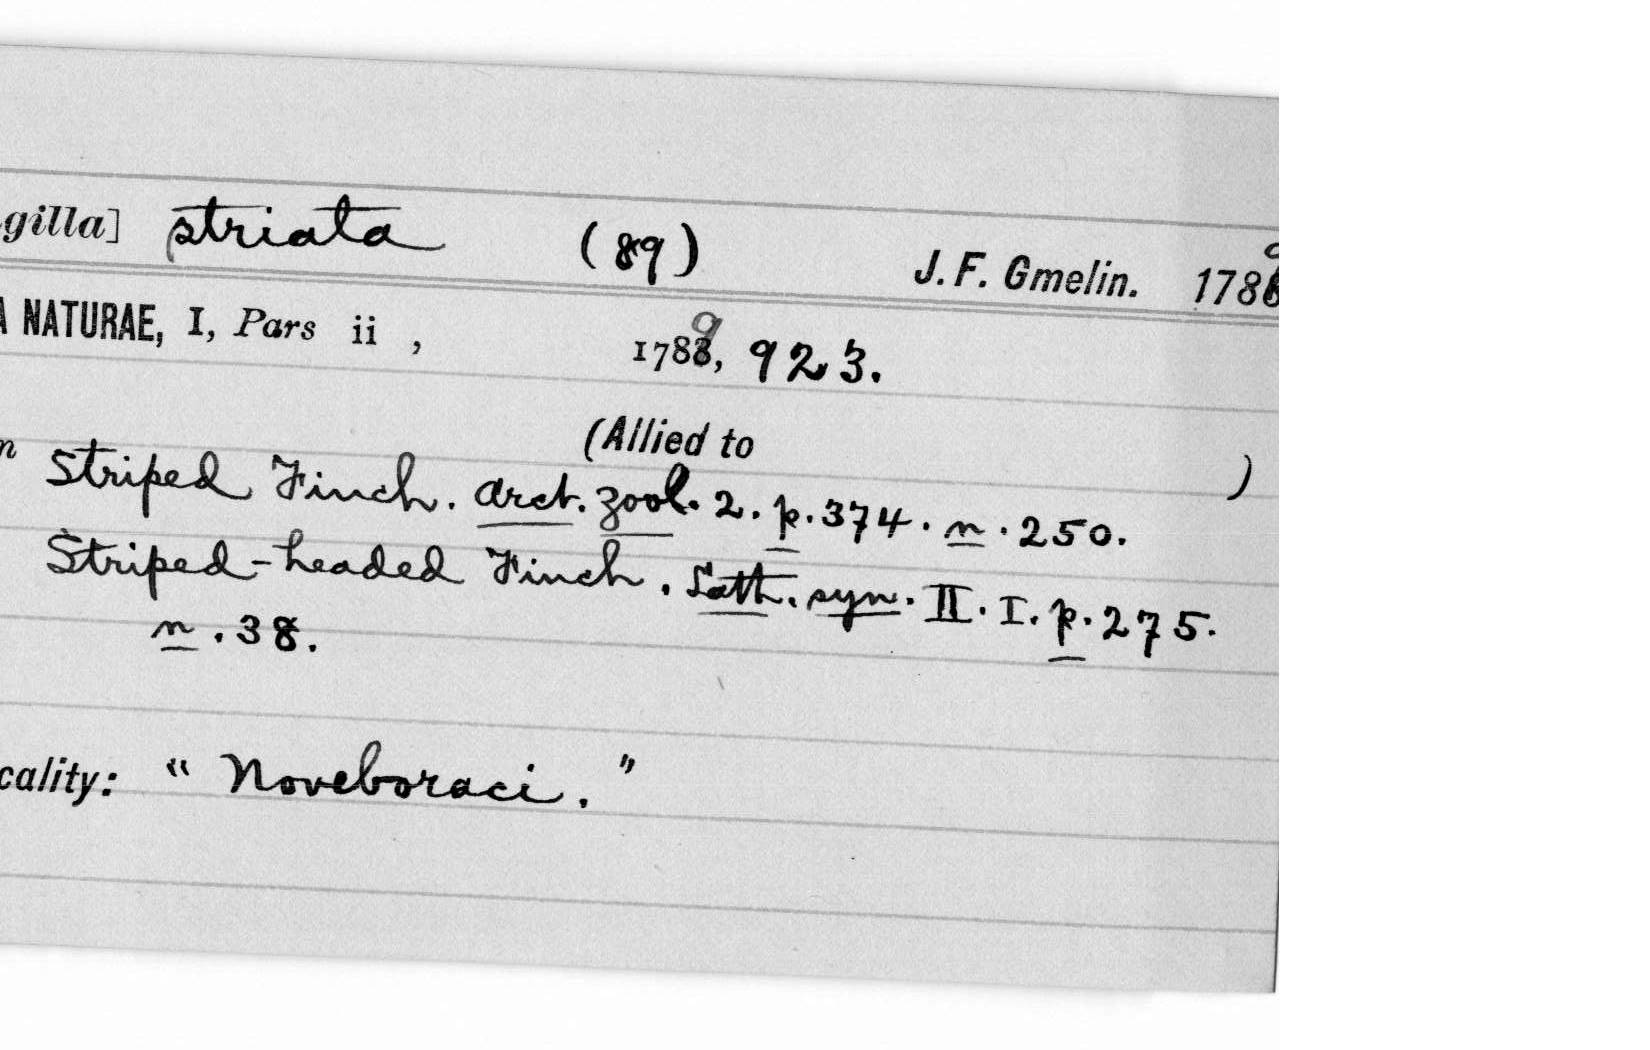 gilla] striata (89) J. F. Gmelin. 1789
A NATURAE, I, Pars ii, 1789, 923.
(Allied to )
n Striped Finch. Arct. zool. 2. p. 374. n. 250.
Striped-headed Finch. Lath. syn. II. I. p. 275.
n. 38.
cality: "Noveboraci."